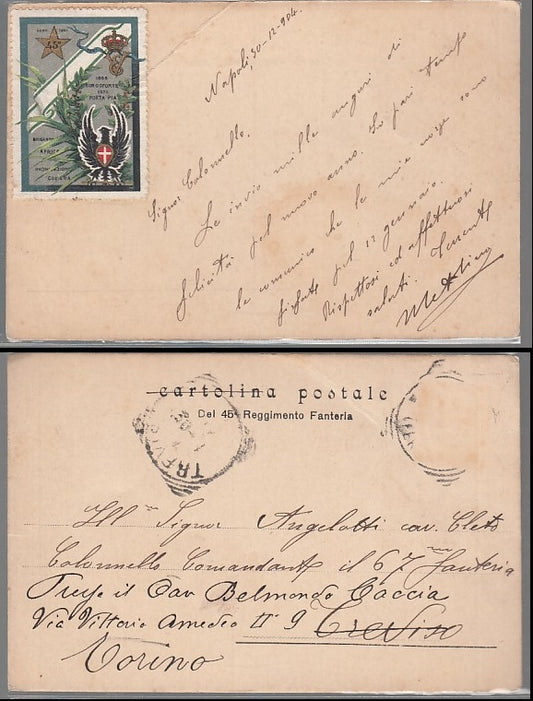 45°
1866
BORGOFORTE
1870
PORTA PIA
AFRICA
Napoli, 30-12-904.
Signor Colonnello,
Le invio mille auguri di
felicità pel nuovo anno. In pari tempo
le comunico che le mie nozze sono
fissate pel 12 gennaio.
Rispettosi ed affettuosi
saluti.
cartolina postale
Del 45° Reggimento Fanteria
TREVISO
Ill mo Signor Angelotti cav. Cleto
Colonnello Comandante il 67 mo fanteria
il Cav Belmondo Caccia
Via Vittorio Amedeo II° 9 Treviso
Torino